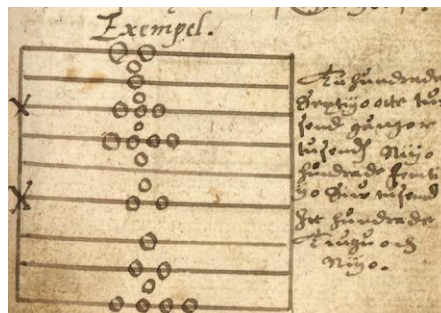 Exempel.
Tuhundrade
Sextijo otte tu
send gångor
tusend, Nijo
hundrade femti
jo Siw tusend
Ett hundrade
Tiugu och
Nijo.